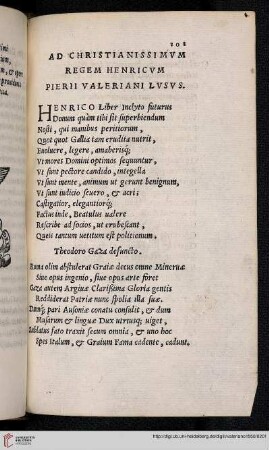 101
AD CHRISTIANISSIMVM
REGEM HENRICVM
PIERII VALERIANI LVSVS.
HENRICO Liber Inclyto futurus
Donum quàm tibi sit superbiendum
Nosti, qui manibus peritiorum,
Quot quot Gallia tam erudita nutrit,
Euoluere, legere, amaberisq;
Vt mores Domini optimos sequuntur,
Vt sunt pectore candido, integella
Vt sunt mente, animum ut gerunt benignum,
Vt sunt iudicio seuero, & acri;
Castigatior, elegantiorq;
Factus inde, Beatulus ualere
Rescribe ad socios, ut erubescant,
Queis tantum uetitum est politionum.
Theodoro Gaza defuncto.
Roma olim abstulerat Graiæ decus omne Mineruæ
Siue opus ingenio, siue opus arte foret
Gaza autem Argiuæ Clarissima Gloria gentis
Reddiderat Patriæ nunc spolia illa suæ.
Dumq; pari Ausoniæ conatu consulit, & dum
Musarum & linguæ Dux utriusq; uiget,
Sublatus fato traxit secum omnia, & uno hoc
Spes italum, & Graium Fama cadente, cadunt.
http://digi.ub.uni-heidelberg.de/diglit/valeriano1550/0201